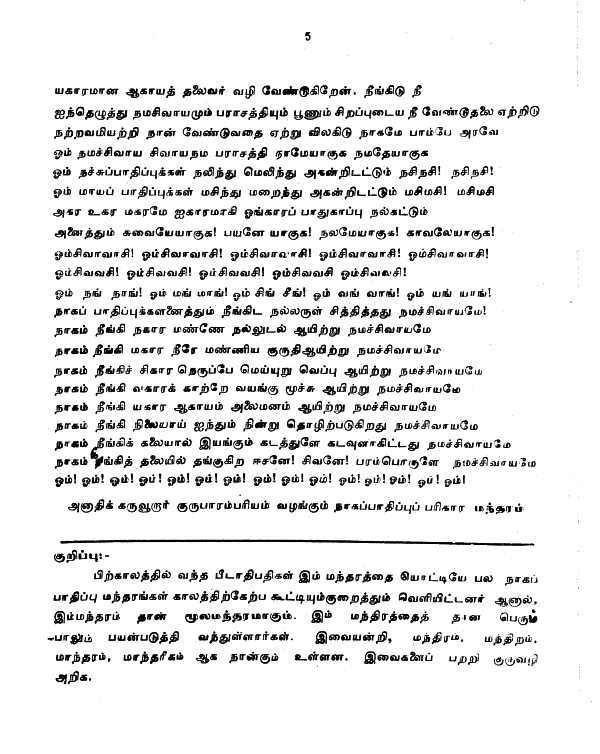 5
யகாரமான ஆகாயத் தலைவர் வழி வேண்டுகிறேன். நீங்கிடு நீ
ஐந்தெழுத்து நமசிவாயமும் பராசத்தியும் பூணும் சிறப்புடைய நீ வேண்டுதலை ஏற்றிடு
நற்றவமியற்றி நான் வேண்டுவதை ஏற்று விலகிடு நாகமே பாம்பே அரவே
ஓம் நமச்சிவாய சிவாயநம பராசத்தி நாமேயாகுக நமதேயாகுக
ஓம் நச்சுப்பாதிப்புக்கள் நலிந்து மெலிந்து அகன்றிடட்டும் நசிநசி! நசிநசி!
ஓம் மாயப் பாதிப்புக்கள் மசிந்து மறைந்து அகன்றிடட்டும் மசிமசி! மசிமசி
அகர உகர மகரமே ஐகாரமாகி ஓங்காரப் பாதுகாப்பு நல்கட்டும்
அனைத்தும் சுவையேயாகுக! பயனே யாகுக! நலமேயாகுக! காவலேயாகுக!
ஓம்சிவாவாசி! ஓம்சிவாவாசி! ஓம்சிவாவாசி! ஓம்சிவாவாசி! ஓம்சிவாவாசி!
ஓம்சிவவசி! ஓம்சிவவசி! ஓம்சிவவசி! ஓம்சிவவசி ஓம்சிவவசி!
ஓம் நங் நாங்! ஓம் மங் மாங்! ஓம் சிங் சீங்! ஓம் வங் வாங்! ஓம் யங் யாங்!
நாகப் பாதிப்புக்களனைத்தும் நீங்கிட நல்லருள் சித்தித்தது நமச்சிவாயமே!
நாகம் நீங்கி நகார மண்ணே நல்லுடல் ஆயிற்று நமச்சிவாயமே
நாகம் நீங்கி மகார நீரே மண்ணிய குருதிஆயிற்று நமச்சிவாயமே
நாகம் நீங்கிச் சிகார நெருப்பே மெய்யுறு வெப்பு ஆயிற்று நமச்சிவாயமே
நாகம் நீங்கி வகாரக் காற்றே வயங்கு மூச்சு ஆயிற்று நமச்சிவாயமே
நாகம் நீங்கி யகார ஆகாயம் அலைமனம் ஆயிற்று நமச்சிவாயமே
நாகம் நீங்கி நிலையாய் ஐந்தும் நின்று தொழிற்படுகிறது நமச்சிவாயமே
நாகம் நீங்கிக் கலையால் இயங்கும் கடத்துளே கடவுளாகிட்டது நமச்சிவாயமே
நாகம் நீங்கித் தலையில் தங்குகிற ஈசனே! சிவனே! பரம்பொருளே நமச்சிவாயமே
ஓம்! ஓம்! ஓம்! ஓம்! ஓம்! ஓம்! ஓம்! ஓம்! ஓம்! ஓம்! ஓம்! ஓம்! ஓம்! ஓம்! ஓம்!
அனாதிக் கருவூரார் குருபாரம்பரியம் வழங்கும் நாகப்பாதிப்புப் பரிகார மந்தரம்
குறிப்பு:-
பிற்காலத்தில் வந்த பீடாதிபதிகள் இம் மந்தரத்தை யொட்டியே பல நாகப்
பாதிப்பு மந்தரங்கள் காலத்திற்கேற்ப கூட்டியும்குறைத்தும் வெளியிட்டனர் ஆனால்,
இம்மந்தரம் தான் மூலமந்தரமாகும். இம் மந்திரத்தைத் தான பெரும்
-பாலும் பயன்படுத்தி வந்துள்ளார்கள். இவையன்றி, மந்திரம், மந்திறம்,
மாந்தரம், மாந்தரீகம் ஆக நான்கும் உள்ளன. இவைகளைப் பற்றி குருவழி
அறிக.